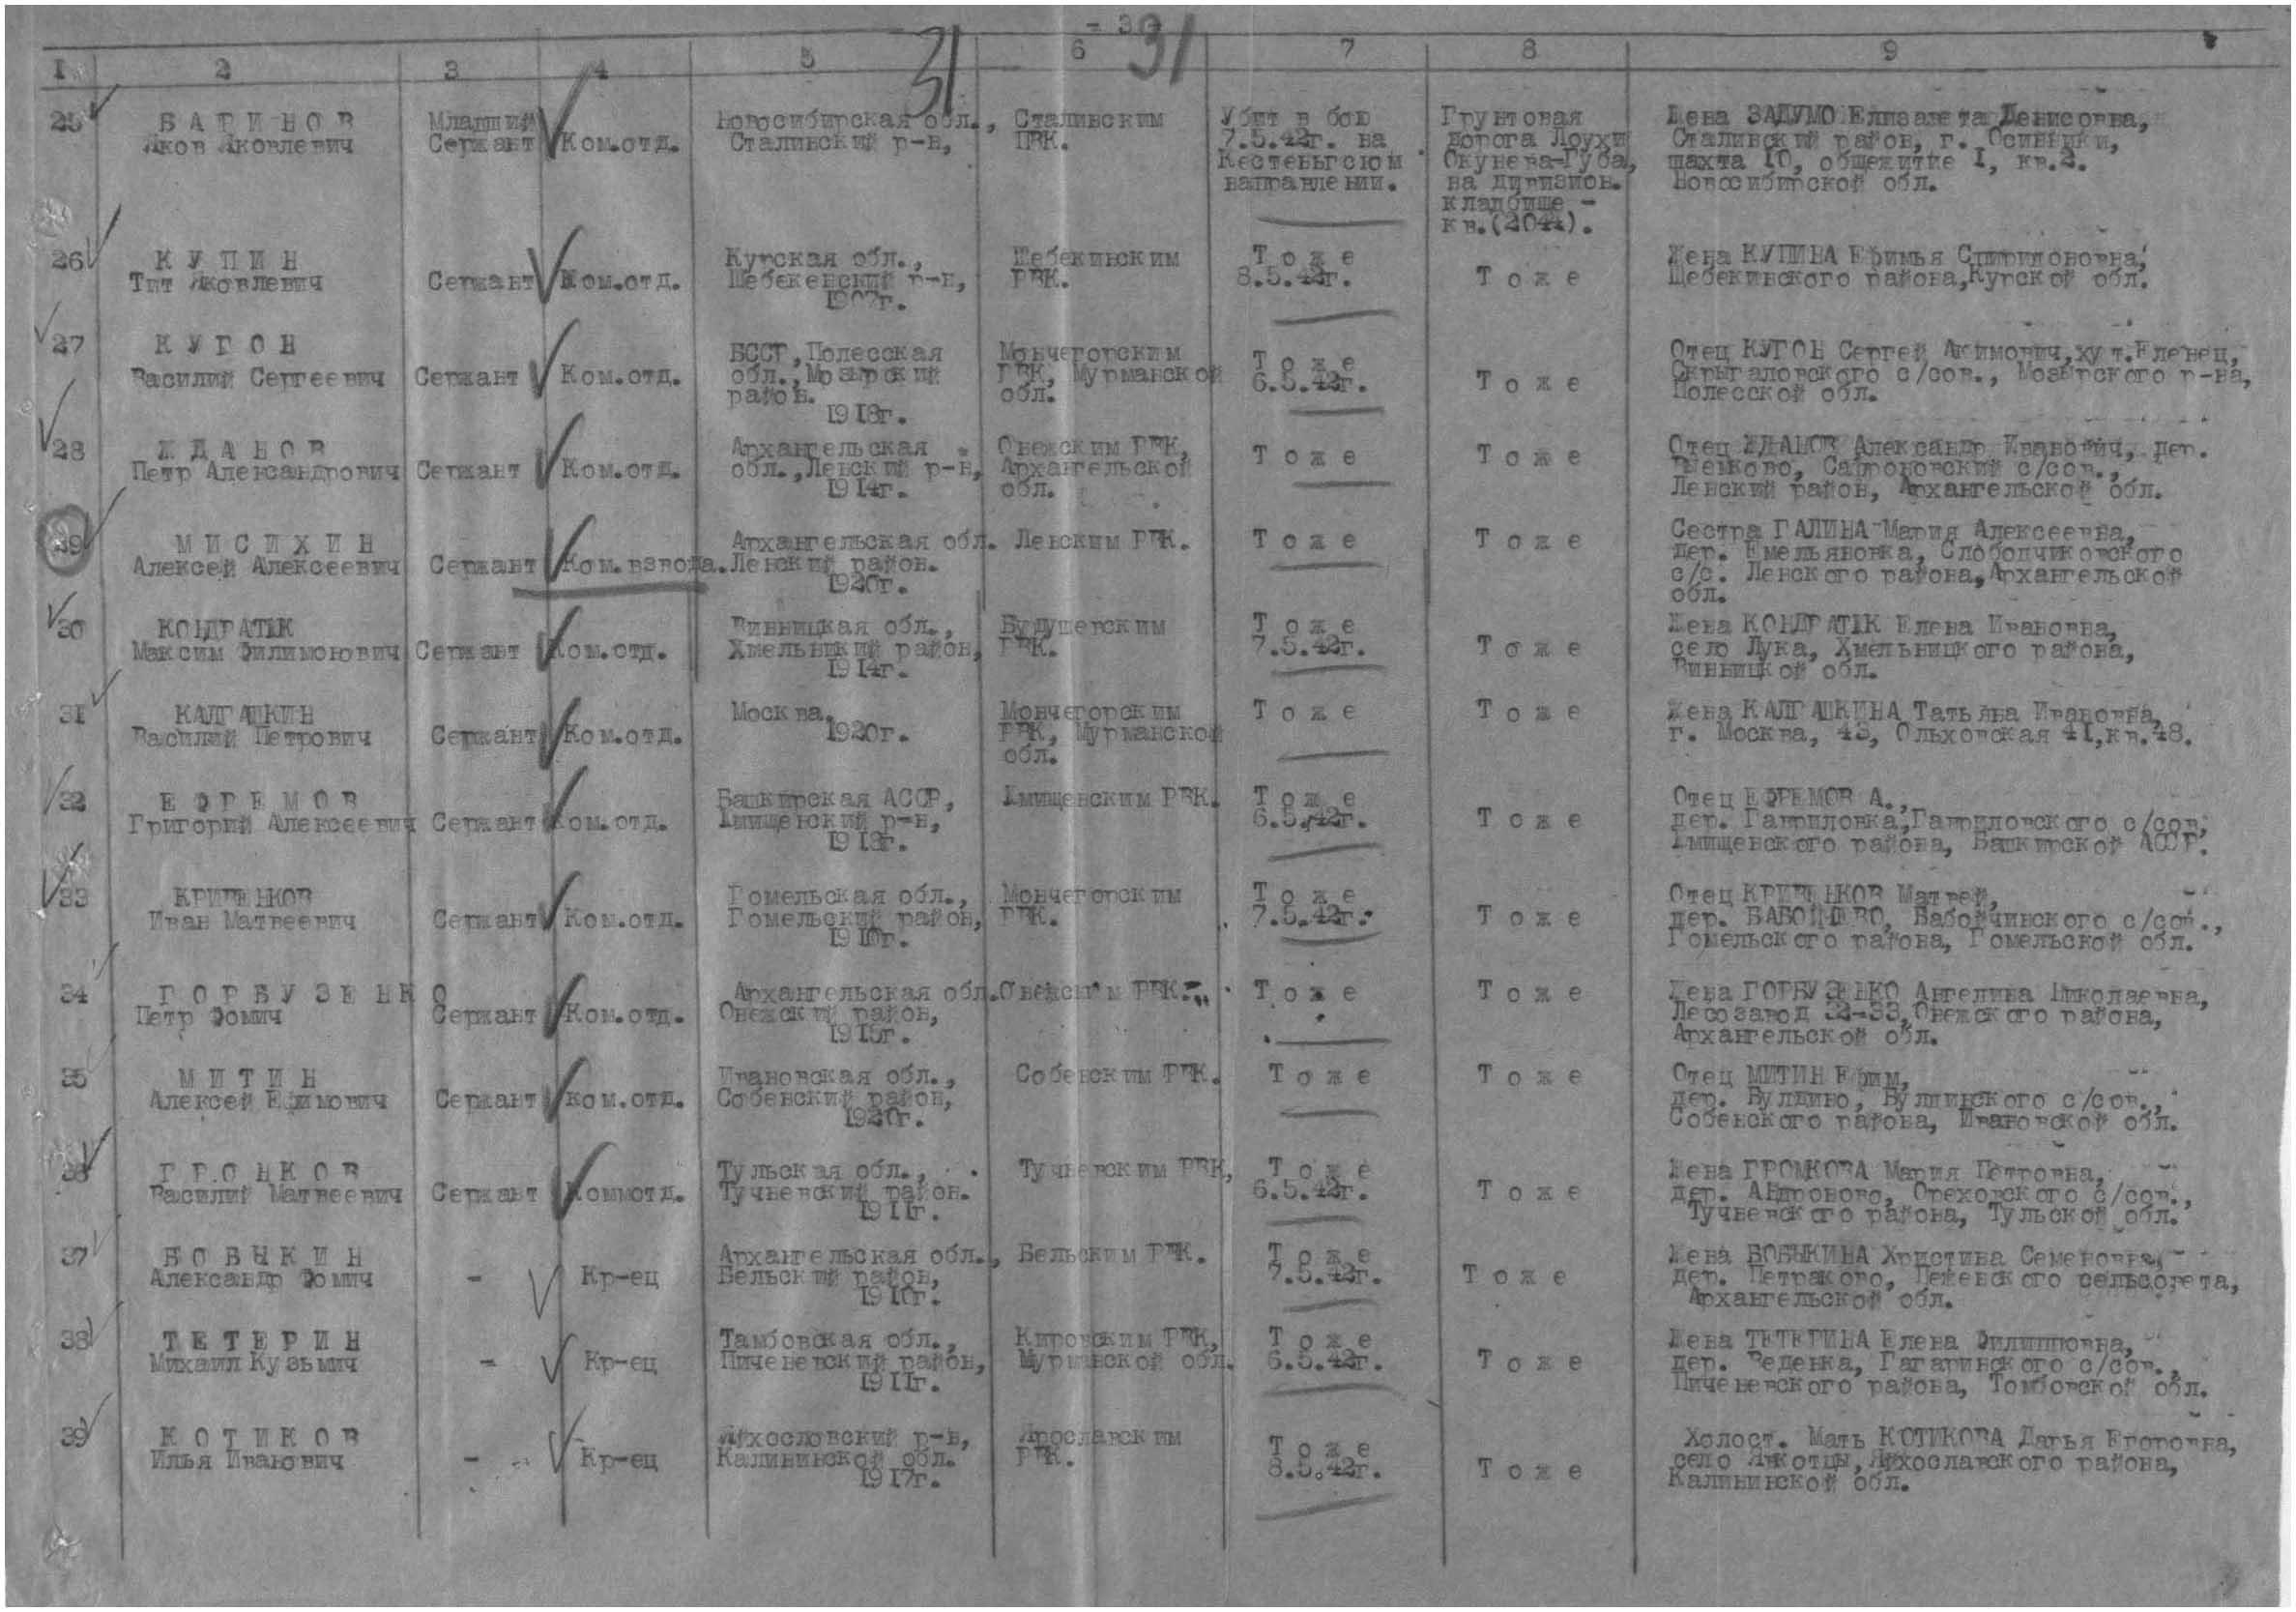 - 3 -
31 31
1 2 3 4 5 6 7 8 9
25 БАРИНОВ Яков Яковлевич
Младший Сержант
Ком.отд.
Новосибирская обл., Сталинский р-н,
Сталинским РВК.
Убит в бою 7.5.42г. на Кестеньгском направлении.
Грунтовая дорога Лоухи Окунева-Губа, на дивизион. кладбище - кв.(2044).
Жена ЗАДУМО Елизавета Денисовна,
Сталинский район, г. Осинники,
шахта 10, общежитие 1, кв.2.
Новосибирской обл.
26 КУПИН Тит Яковлевич
Сержант
Ком.отд.
Курская обл., Шебекенский р-н, 1907г.
Шебекинским РВК.
Тоже 8.5.42г.
Тоже
Жена КУПИНА Ефимья Спиридоновна,
Шебекинского района,Курской обл.
27 КУГОН Василий Сергеевич
Сержант
Ком.отд.
БССР,Полесская обл.,Мозырский район. 1918г.
Мончегорским РВК, Мурманской обл.
Тоже 6.5.42г.
Тоже
Отец КУГОН Сергей Акимович,хут.Еленец,
Скрыгаловского с/сов., Мозырского р-на,
Полесской обл.
28 ЖДАНОВ Петр Александрович
Сержант
Ком.отд.
Архангельская обл.,Ленский р-н, 1914г.
Онежским РВК, Архангельской обл.
Тоже
Тоже
Отец ЖДАНОВ Александр Иванович, дер.
Сафроновский с/сов.,
Ленский район, Архангельской обл.
29 МИСИХИН Алексей Алексеевич
Сержант
Ком.взвода.
Архангельская обл. Ленский район. 1920г.
Ленским РВК.
Тоже
Тоже
Сестра ГАЛИНА Мария Алексеевна,
дер. Емельяновка, Слободчиковского
с/с. Ленского района,Архангельской
обл.
30 КОНДРАТЮК Максим Филимонович
Сержант
Ком.отд.
Винницкая обл., Хмельницкий район, 1914г.
РВК.
Тоже 7.5.42г.
Тоже
Жена КОНДРАТЮК Елена Ивановна,
село Лука, Хмельницкого района,
Винницкой обл.
31 КАЛГАШКИН Василий Петрович
Сержант
Ком.отд.
Москва. 1920г.
Мончегорским РВК, Мурманской обл.
Тоже
Тоже
Жена КАЛГАШКИНА Татьяна Ивановна,
г. Москва, 43, Ольховская 41,кв.48.
32 ЕФРЕМОВ Григорий Алексеевич
Сержант
Ком.отд.
Башкирская АССР, р-н, 1918г.
РВК.
Тоже 6.5.42г.
Тоже
Отец ЕФРЕМОВ А.,
дер. Гавриловка,Гавриловского с/сов,
района, Башкирской АССР.
33 КРИВЕНКОВ Иван Матвеевич
Сержант
Ком.отд.
Гомельская обл., Гомельский район, 1910г.
Мончегорским РВК.
Тоже 7.5.42г.
Тоже
Отец КРИВЕНКОВ Матвей,
дер. Бабойчинского с/сов.,
Гомельского района, Гомельской обл.
34 ГОРБУЗЕНКО Петр Фомич
Сержант
Ком.отд.
Архангельская обл. Онежский район, 1915г.
Онежским РВК.
Тоже
Тоже
Жена ГОРБУЗЕНКО Ангелина Николаевна,
Лесозавод 32-33,Онежского района,
Архангельской обл.
35 МИТИН Алексей Ефимович
Сержант
Ком.отд.
Ивановская обл., Собенский район, 1920г.
Собенским РВК.
Тоже
Тоже
Отец МИТИН Ефим,
дер. Булдино, с/сов.,
Собенского района, Ивановской обл.
36 ГРОНКОВ Василий Матвеевич
Сержант
Коммотд.
Тульская обл., Тучневский район. 1911г.
Тучневским РВК,
Тоже 6.5.42г.
Тоже
Жена ГРОМКОВА Мария Петровна,
дер. Ореховского с/сов.,
Тучневского района, Тульской обл.
37 БОБЫКИН Александр Фомич
-
Кр-ец
Архангельская обл., Вельский район, 1910г.
Вельским РВК.
Тоже 7.5.42г.
Тоже
Жена БОБЫКИНА Христина Семеновна,
дер. Петраково, Пежевского сельсовета,
Архангельской обл.
38 ТЕТЕРИН Михаил Кузьмич
-
Кр-ец
Тамбовская обл., Пиченевский район, 1911г.
Кировским РВК, Мурманской обл.
Тоже 6.5.42г.
Тоже
Жена ТЕТЕРИНА Елена Филипповна,
дер. Веденка, Гагаринского с/сов.,
Пиченевского района, Томбовской обл.
39 КОТИКОВ Илья Иванович
-
Кр-ец
р-н, Калининской обл. 1917г.
Ярославским РВК.
Тоже 8.5.42г.
Тоже
Холост. Мать КОТИКОВА Дарья Егоровна,
село района,
Калининской обл.